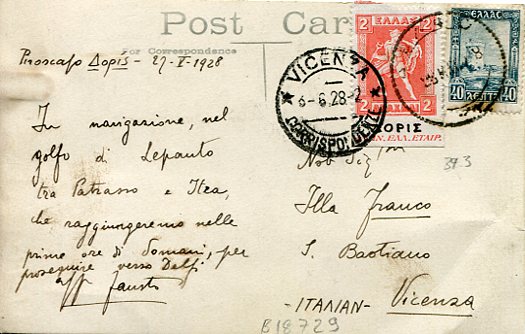 Post Card
For Correspondence
Piroscafo Δορις - 27-V-1928
In navigazione, nel
golfo di Lepanto
tra Patrasso e Itea,
che raggiungeremo nelle
prime ore di domani, per
proseguire verso Delfi
aff
Fausto
ΕΛΛΑΣ
2 2
2 2
ΔΟΡΙΣ
ΕΛΛ. ΕΤΑΙΡ.
ΕΛΛΑΣ
40 ΛΕΠΤΑ 40
VICENZA
6-6.28
CORRISPONDENZE
373
Nob Sig
Illa Franco
S. Bastiano
Vicenza
-ITALIAN-
B18729